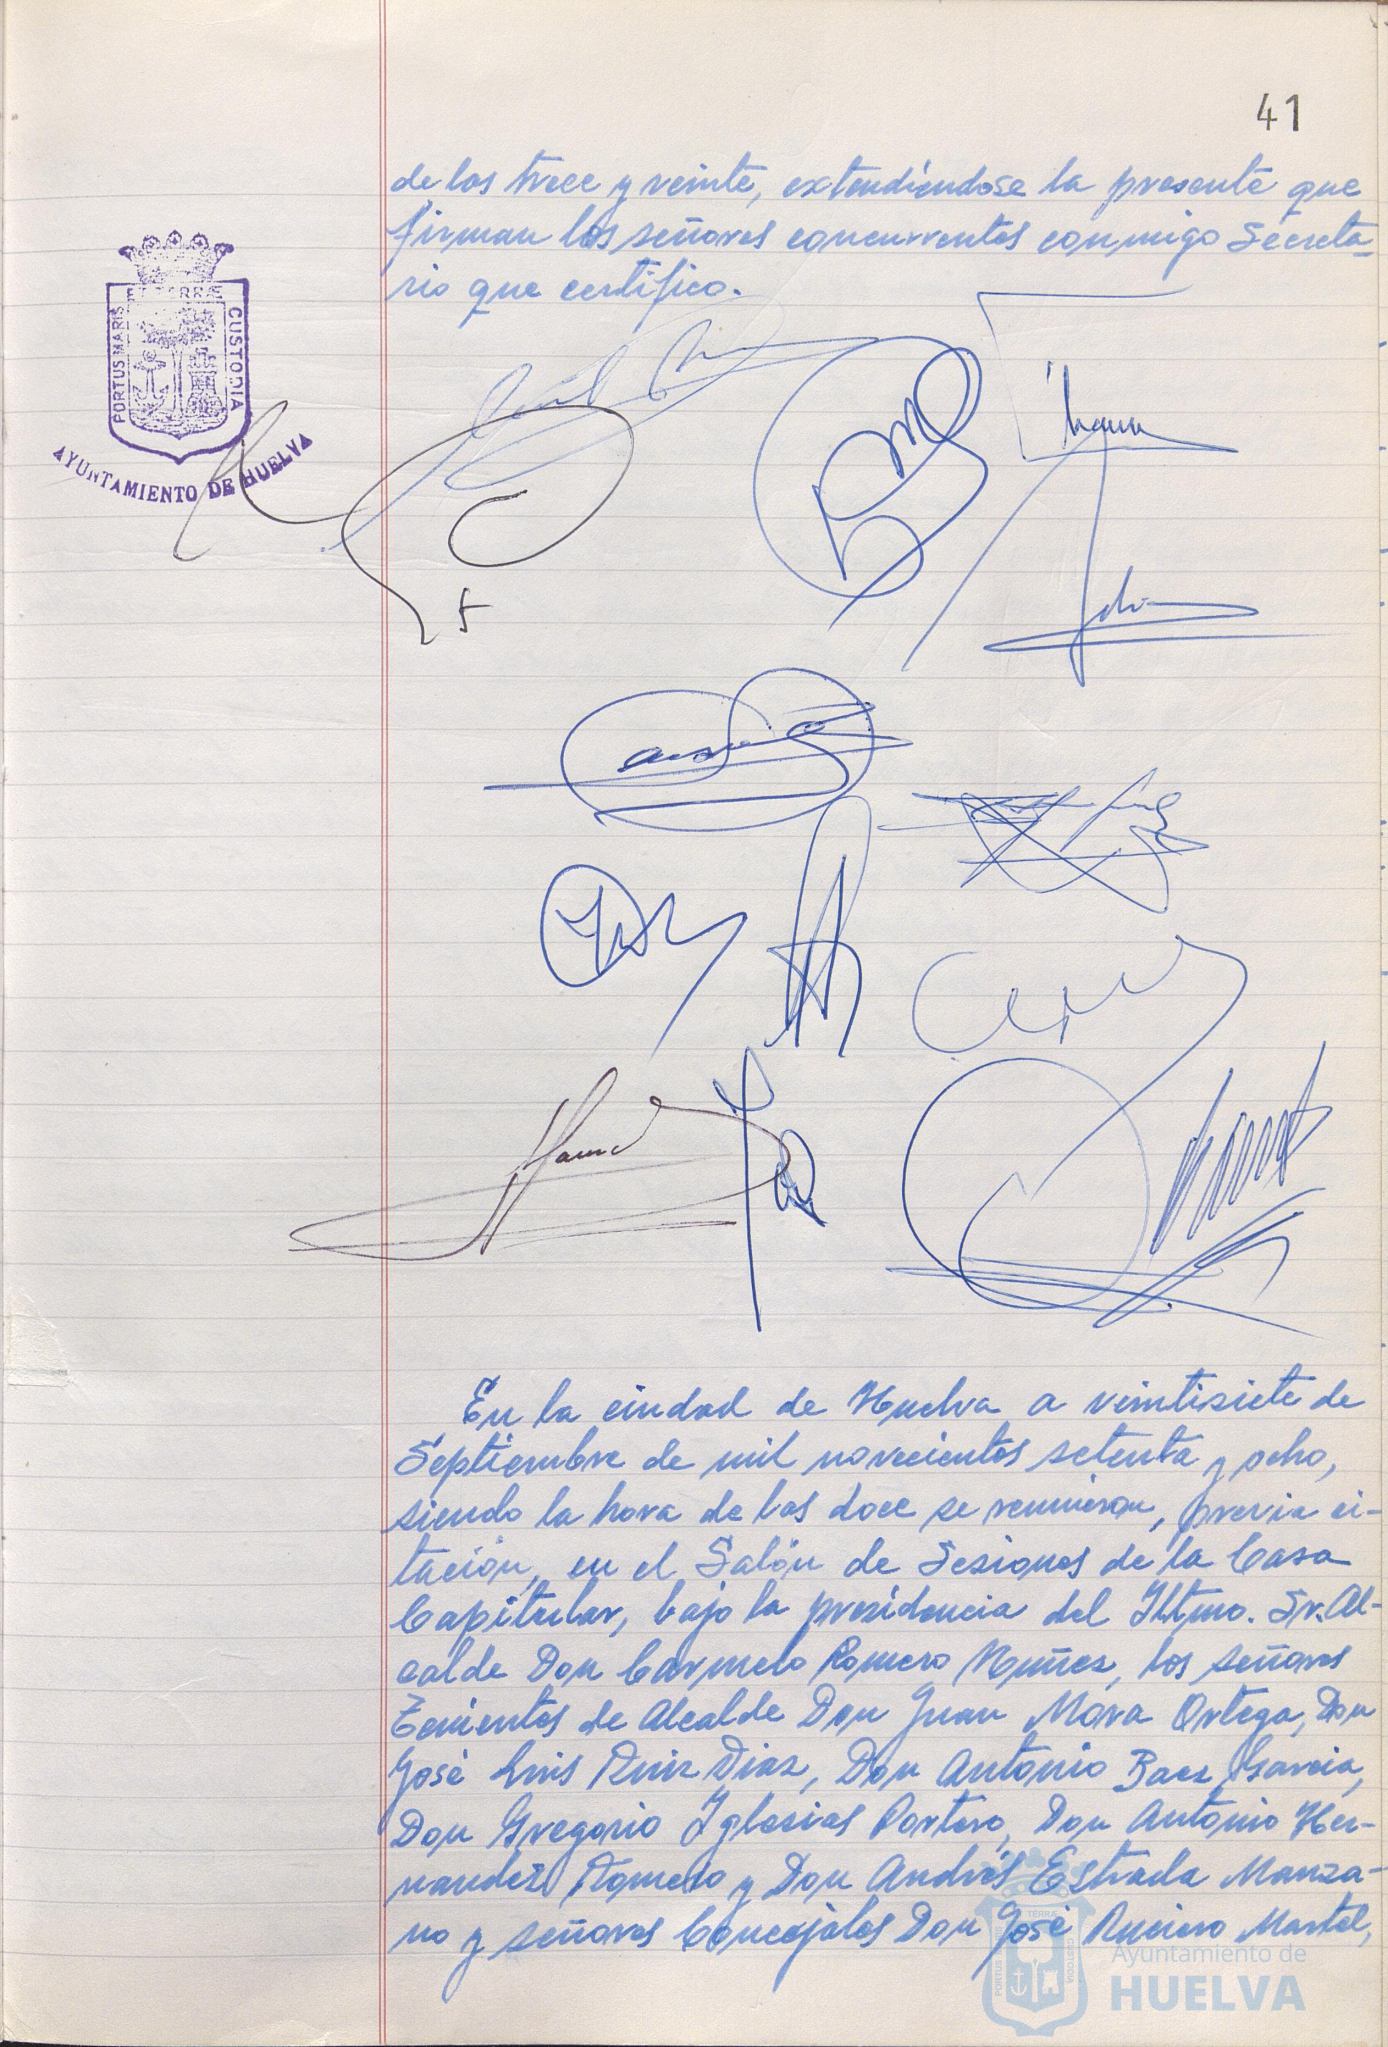 41
de las trece y veinte, extendiéndose la presente que
firman los señores concurrentes conmigo Secreta-
rio que certifico.
PORTUS MARIS ET TERRÆ CUSTODIA
AYUNTAMIENTO DE HUELVA
En la ciudad de Huelva a veintisiete de
Septiembre de mil novecientos setenta y ocho,
siendo la hora de las doce se reunieron, previa ci-
tación, en el Salón de Sesiones de la Casa
Capitular, bajo la presidencia del Iltmo. Sr. Al-
calde Don Carmelo Romero Nuñez, los señores
Tenientes de Alcalde Don Juan Mora Ortega, Don
José Luis Ruiz Diaz, Don Antonio Baez Garcia,
Don Gregorio Iglesias Portero, Don Antonio Her-
nandez Romero y Don Andrés Estrada Manza-
no y señores Concejales Don José Martel,
Ayuntamiento de
HUELVA